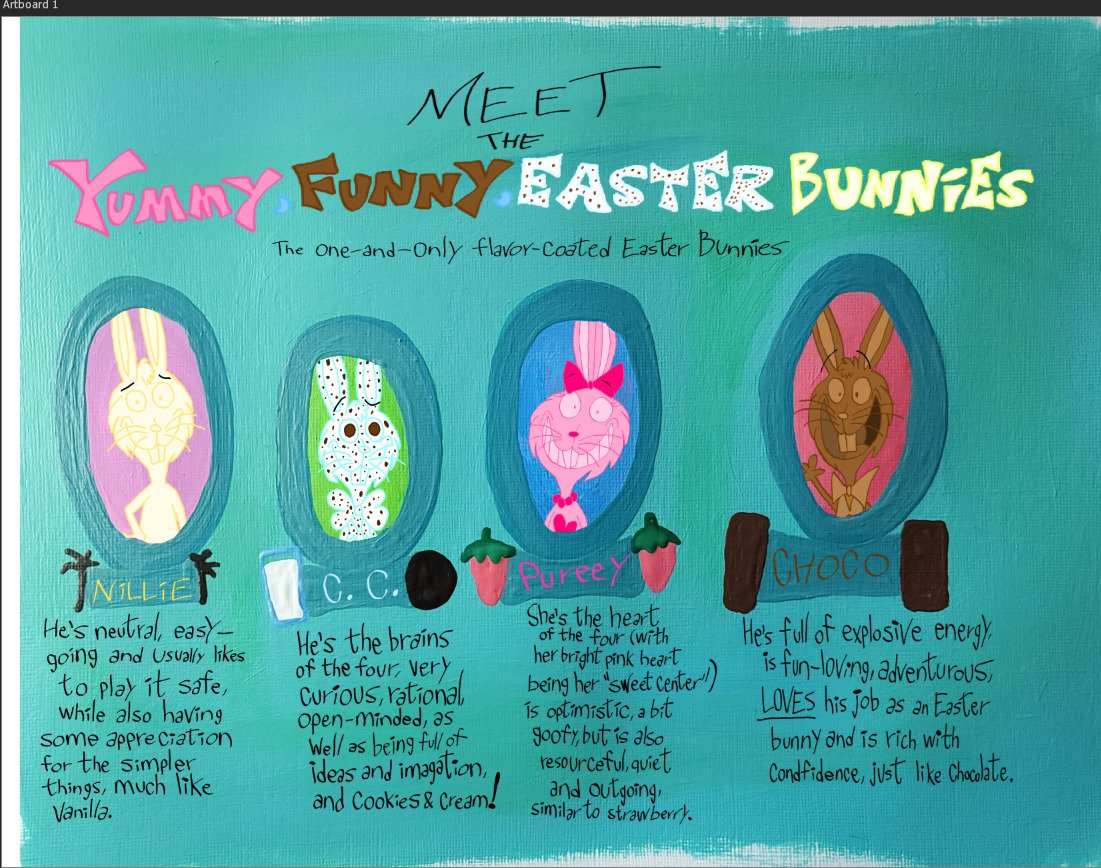 Artboard 1
MEET
THE
YUMMY, FUNNY, EASTER BUNNiES
The One-and-Only flavor-coated Easter Bunnies
NiLLiE
C. C.
PureeY
CHOCO
He's neutral, easy-
going and usually likes
to play it safe,
while also having
some appreciation
for the simpler
things, much like
Vanilla.
He's the brains
of the four, very
curious, rational,
open-minded, as
well as being full of
ideas and imagation,
and Cookies & Cream!
She's the heart
of the four (with
her bright pink heart
being her "sweet center")
is optimistic, a bit
goofy, but is also
resourceful, quiet
and outgoing,
similar to strawberry.
He's full of explosive energy,
is fun-loving, adventurous,
LOVES his job as an Easter
bunny and is rich with
Condfidence, just like Chocolate.